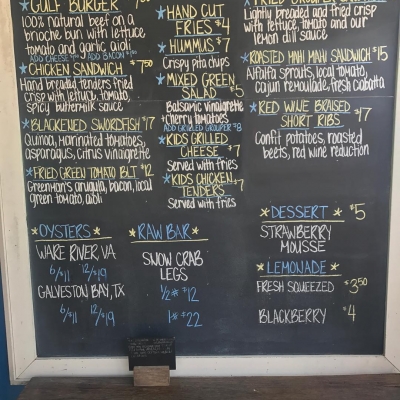 GULF BURGER
100% natural beef on a
brioche bun with lettuce
tomato and garlic aioli
ADD CHEESE ADD BACON
CHICKEN SANDWICH $7.50
Hand breaded tenders fried
crisp with lettuce, tomato,
spicy buttermilk sauce
BLACKENED SWORDFISH $17
Quinoa, marinated tomatoes,
asparagus, citrus vinaigrette
FRIED GREEN TOMATO BLT $12
Greenman's arugula, bacon, local
green tomato, aioli
OYSTERS
WARE RIVER, VA
6/$11 12/$19
GALVESTON BAY, TX
6/$11 12/$19
HAND CUT
FRIES $4
HUMMUS $7
Crispy pita chips
MIXED GREEN
SALAD $5
Balsamic vinaigrette
+cherry tomatoes
ADD GRILLED GROUPER $8
KIDS GRILLED
CHEESE $7
Served with fries
KIDS CHICKEN
TENDERS $7
Served with fries
RAW BAR
SNOW CRAB
LEGS
1/2# $12
1# $22
FRIED GROUPER
Lightly breaded and fried crisp
with lettuce, tomato and our
lemon dill sauce
ROASTED MAHI MAHI SANDWICH $15
Alfalfa sprouts, local tomato,
cajun remoulade, fresh ciabatta
RED WINE BRAISED
SHORT RIBS $17
Confit potatoes, roasted
beets, red wine reduction
DESSERT $5
STRAWBERRY
MOUSSE
LEMONADE
FRESH SQUEEZED $3.50
BLACKBERRY $4